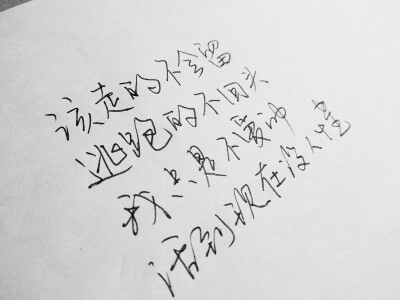 该走的不会留
逃跑的不回头
我只是不
活到现在没人